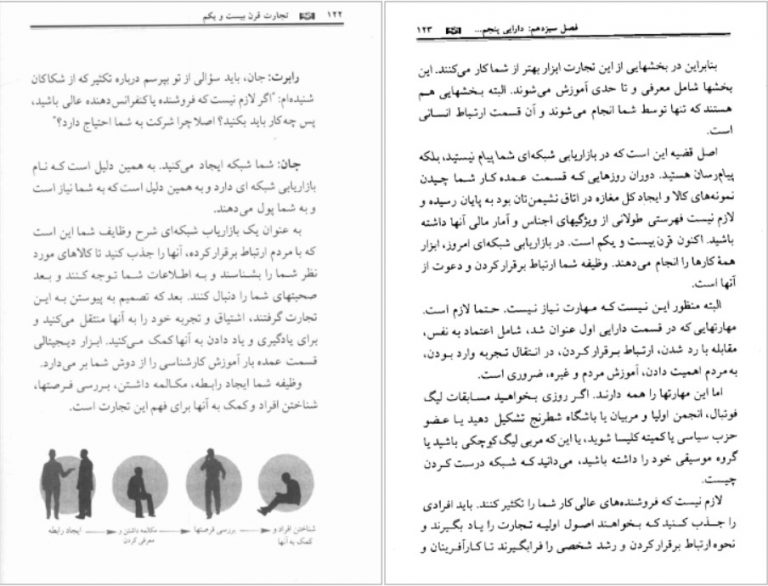 ۱۲۲ تجارت قرن بیست و یکم
رابرت: جان، باید سؤالی از تو بپرسم درباره تکثیر که از شکاکان
شنیده‌ام: "اگر لازم نیست که فروشنده یا کنفرانس‌دهنده عالی باشید،
پس چه کار باید بکنید؟ اصلا چرا شرکت به شما احتیاج دارد؟"
جان: شما شبکه ایجاد می‌کنید. به همین دلیل است که نام
بازاریابی شبکه ای دارد و به همین دلیل است که به شما نیاز است
و به شما پول می‌دهند.
به عنوان یک بازاریاب شبکه‌ای شرح وظایف شما این است
که با مردم ارتباط برقرار کرده، آنها را جذب کنید تا کالاهای مورد
نظر شما را بشناسند و به اطلاعات شما توجه کنند و بعد
صحبتهای شما را دنبال کنند. بعد که تصمیم به پیوستن به این
تجارت گرفتند، اشتیاق و تجربه خود را به آنها منتقل می‌کنید و
برای یادگیری و یاد دادن به آنها کمک می‌کنید. ابزار دیجیتالی
قسمت عمده بار آموزش کارشناسی را از دوش شما بر می‌دارد.
وظیفه شما ایجاد رابطه، مکالمه داشتن، بررسی فرصتها،
شناختن افراد و کمک به آنها برای فهم این تجارت است.
ایجاد رابطه
مکالمه داشتن و
معرفی کردن
بررسی فرصتها
شناختن افراد و
کمک به آنها
فصل سیزدهم: دارایی پنجم... ۱۲۳
بنابراین در بخشهایی از این تجارت ابزار بهتر از شما کار می‌کنند. این
بخشها شامل معرفی و تا حدی آموزش می‌شوند. البته بخشهایی هم
هستند که تنها توسط شما انجام می‌شوند و آن قسمت ارتباط انسانی
است.
اصل قضیه این است که در بازاریابی شبکه‌ای شما پیام نیستید، بلکه
پیام‌رسان هستید. دوران روزهایی که قسمت عمده کار شما چیدن
نمونه‌های کالا و ایجاد کل مغازه در اتاق نشیمن‌تان بود به پایان رسیده و
لازم نیست فهرستی طولانی از ویژگیهای اجناس و آمار مالی آنها داشته
باشید. اکنون قرن بیست و یکم است. در بازاریابی شبکه‌ای امروز، ابزار
همهٔ کارها را انجام می‌دهند. وظیفه شما ارتباط برقرار کردن و دعوت از
آنها است.
البته منظور این نیست که مهارت نیاز نیست. حتما لازم است.
مهارتهایی که در قسمت دارایی اول عنوان شد، شامل اعتماد به نفس،
مقابله با رد شدن، ارتباط برقرار کردن، در انتقال تجربه وارد بودن،
به مردم اهمیت دادن، آموزش مردم و غیره، ضروری است.
اما این مهارتها را همه دارند. اگر روزی بخواهید مسابقات لیگ
فوتبال، انجمن اولیا و مربیان یا باشگاه شطرنج تشکیل دهید یا عضو
حزب سیاسی یا کمیته کلیسا شوید، یا این که مربی لیگ کوچکی باشید یا
گروه موسیقی خود را داشته باشید، می‌دانید که شبکه درست کردن
چیست.
لازم نیست که فروشنده‌های عالی کار شما را تکثیر کنند. باید افرادی
را جذب کنید که بخواهند اصول اولیه تجارت را یاد بگیرند و
نحوه ارتباط برقرار کردن و رشد شخصی را فرابگیرند تا کارآفرینان و